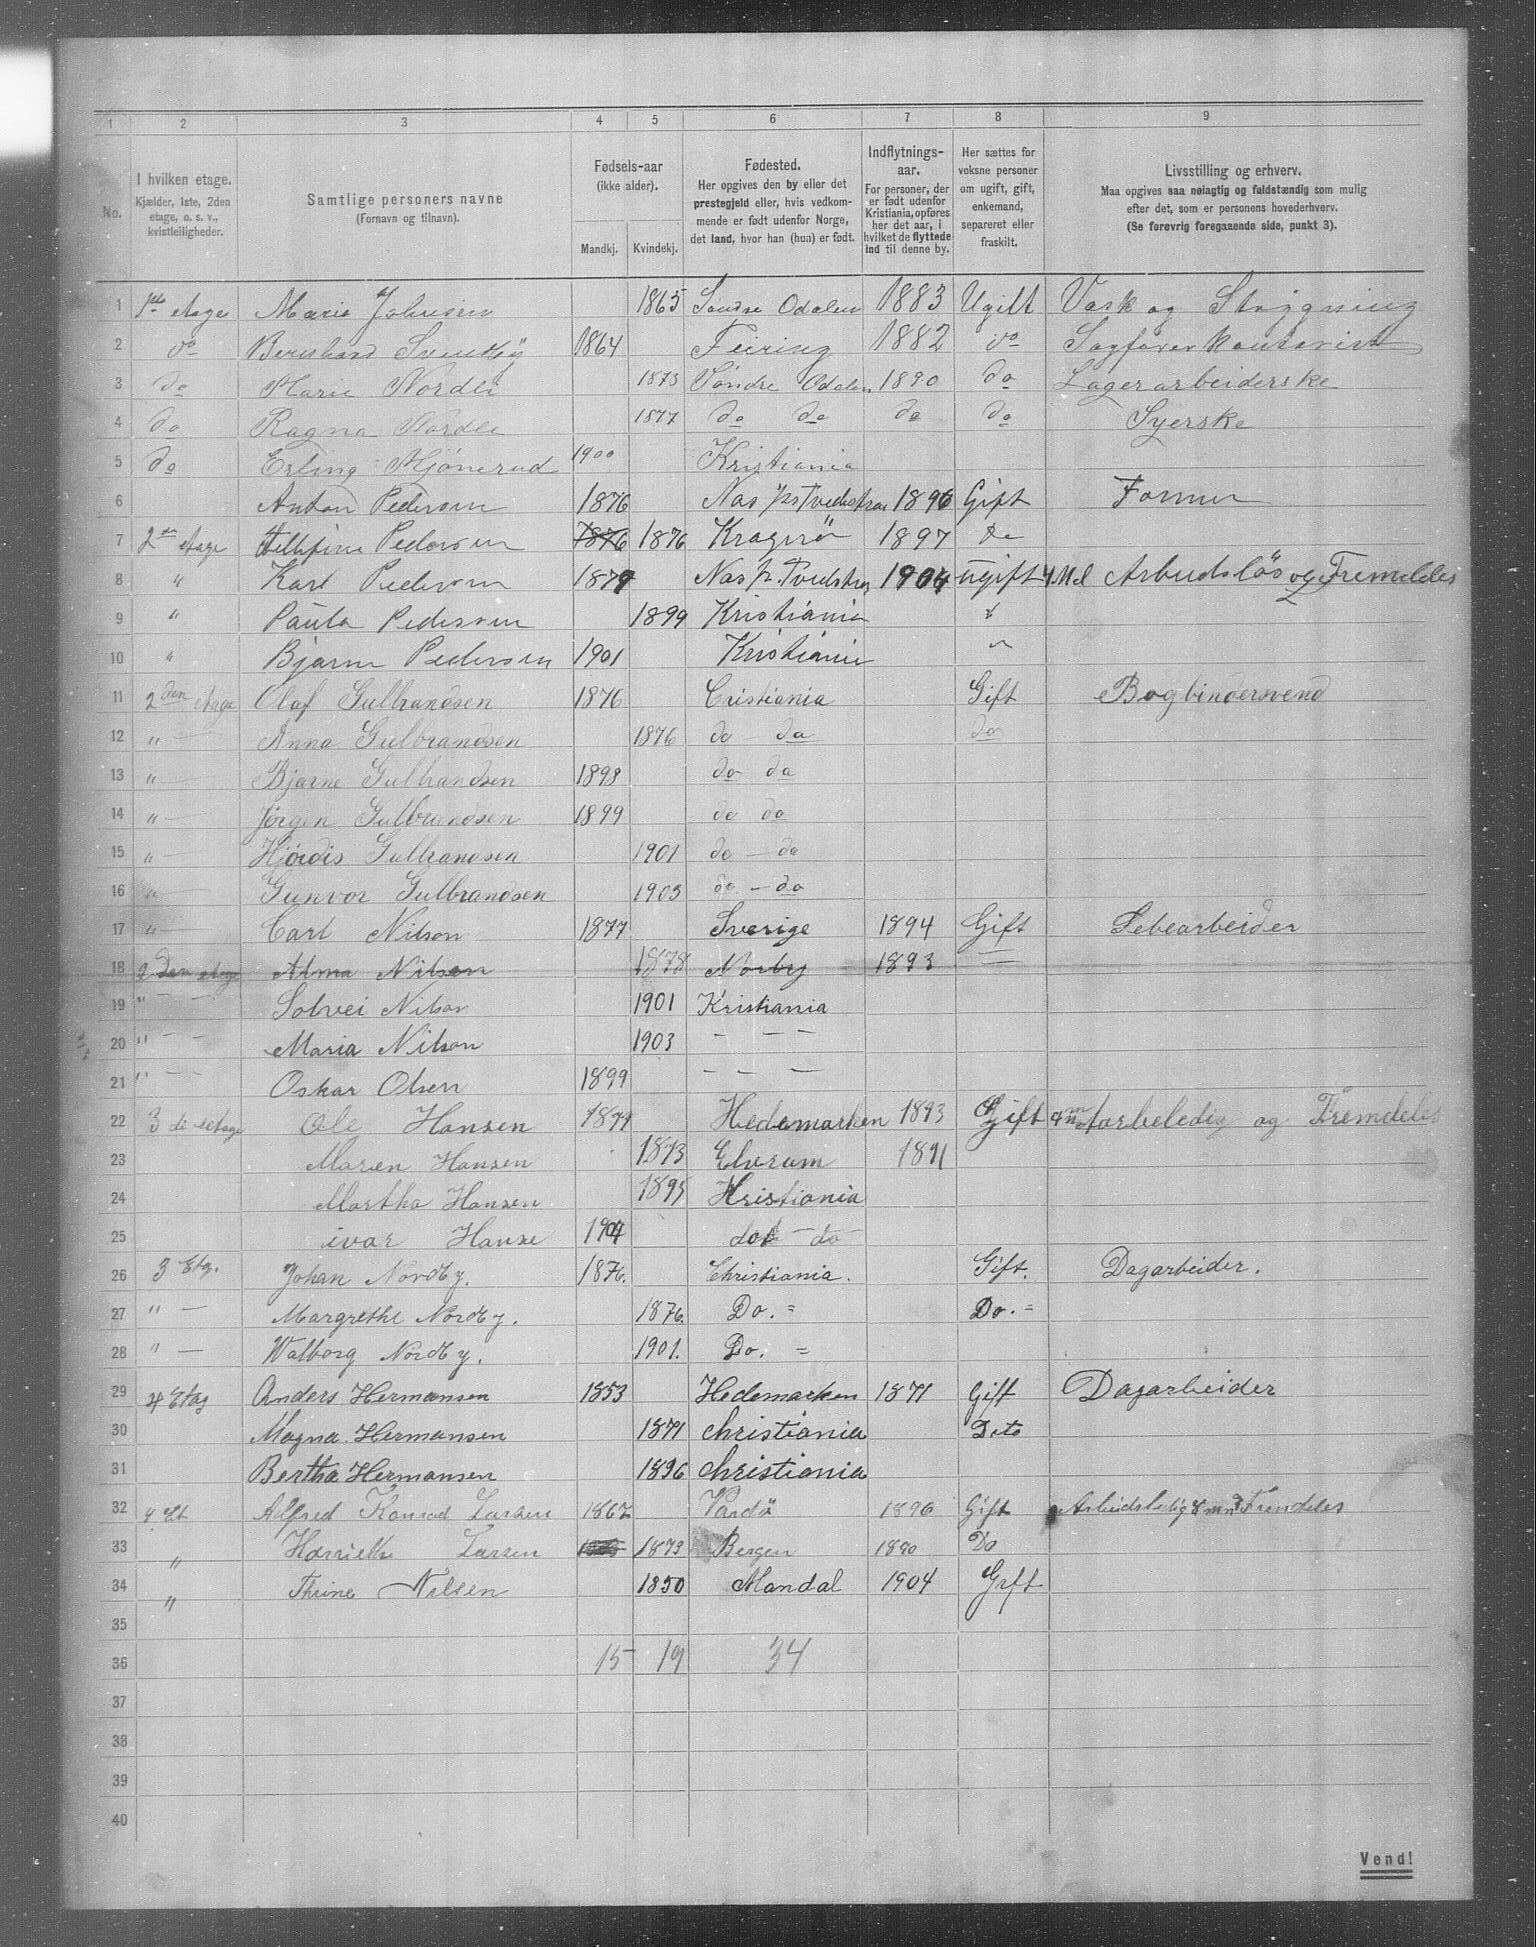 1 2 3 4 5 6 7 8 9
No. I hvilken etage. Kjælder, 1ste, 2den etage, o. s. v., kvistleiligheder. Samtlige personers navne (Fornavn og tilnavn). Fødsels-aar (ikke alder). Mandkj. Kvindekj. Fødested. Her opgives den by eller det prestegjeld eller, hvis vedkommende er født udenfor Norge, det land, hvor han (hun) er født. Indflytnings-aar. For personer, der er født udenfor Kristiania, opføres her det aar, i hvilket de flyttede ind til denne by. Her sættes for voksne personer om ugift, gift, enkemand, separeret eller fraskilt. Livsstilling og erhverv. Maa opgives saa nøiagtig og fuldstændig som mulig efter det, som er personens hovederhverv. (Se forøvrig foregaaende side, punkt 3).
1 1ste etage Marie Johnsen 1865 Søndre Odalen 1883 Ugift Vask og Strygning
2 do Bernhard 1864 Feiring 1882 do Sagførerkontorist
3 do Marie Nordli 1873 Søndre Odalen 1890 do Lagerarbeiderske
4 do Ragna Nordli 1877 do do do do Syerske
5 do Erling Mjønerud 1900 Kristiania
6 Anton Pedersen 1876 Nas ps Tvedestran 1896 Gift Former
7 2den etage Pedersen 1876 1876 Kragerø 1897 Do
8 " Karl Pedersen 1879 Nas p. Tvedstra 1904 ugift 4 Md Arbeidsløs og Fremdeles
9 " Paula Pedersen 1899 Kristiania "
10 " Bjarne Pedersen 1901 Kristiania "
11 2den etage Olaf Gulbrandsen 1876 Cristiania Gift Bogbindersvend
12 " Anna Gulbrandsen 1876 do - do do
13 " Bjarne Gulbrandsen 1898 do do
14 " Jørgen Gulbrandsen 1899 do do
15 " Hjørdis Gulbrandsen 1901 do - do
16 " Gunvor Gulbrandsen 1903 do - do
17 " Carl Nilson 1877 Sverige 1894 Gift Sebearbeider
18 2den etage Alma Nilsen 1878 Norby 1893 —
19 " - - Solvei Nilson 1901 Kristiania
20 " - - Maria Nilson 1903 — — —
21 " - - Oskar Olsen 1899 — — —
22 3die etage Ole Hansen Hedemarken 1893 Gift 4 mn arbeledig og Fremdeles
23 Maren Hansen 1873 Elverum 1891
24 Martha Hansen 1895 Kristiania
25 ivar Hanse 1904 dot - do
26 3 Etg. Johan Nordby. 1876. Christiania. Gift. Dagarbeider.
27 " — Margrethe Nordby. 1876. Do. = Do. =
28 " — Walborg Nordby. 1901. Do. =
29 4 Etag Anders Hermansen 1853 Hedemarken 1871 Gift Dagarbeider
30 Magna Hermansen 1871 Christiania Dito
31 Bertha Hermansen 1896 Christiania
32 4 Et Alfred Konrad Larsen 1867 Vardø 1896 Gift Arbeidsledig 8 mn Fremdeles
33 " Larsen 1873 Bergen 1890 Do
34 " Thrine Nilsen 1850 Mandal 1904 Gift
35
36 15 19 34
37
38
39
40
Vend!